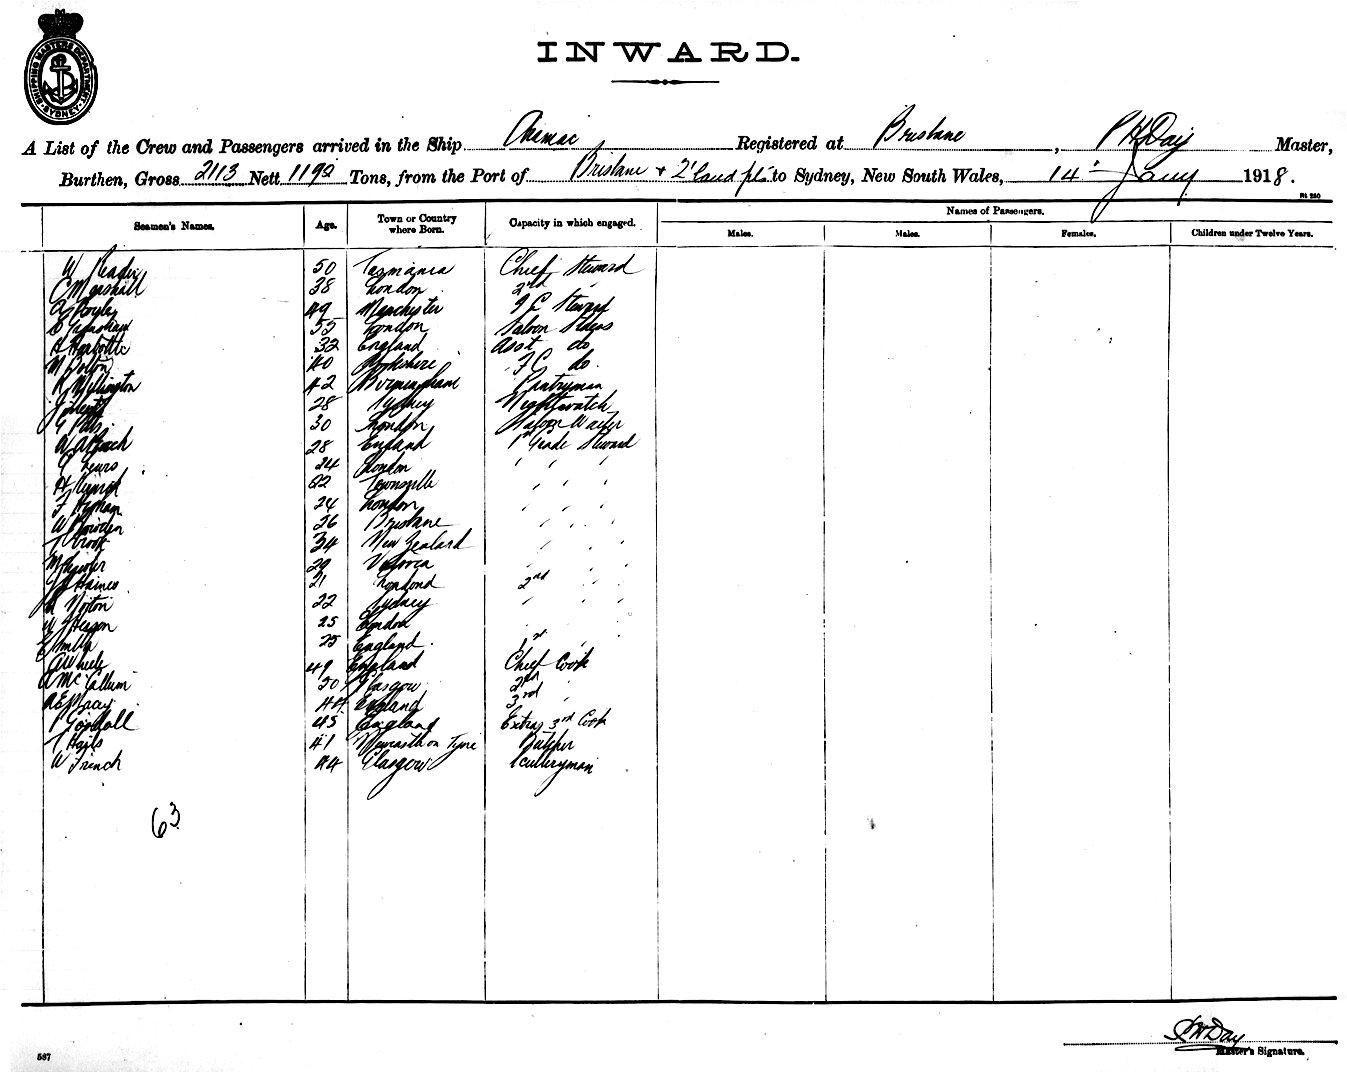 SHIPPING MASTERS DEPARTMENT SYDNEY
INWARD.
A List of the Crew and Passengers arrived in the Ship Registered at Brisbane, P H Day Master,
Burthen, Gross 2113 Nett 1192 Tons, from the Port of Brisbane + Q'land pts to Sydney, New South Wales, 14 Jany 1918.
Names of Passengers.
Seamen's Names. Age. Town or Country where Born. Capacity in which engaged. Males. Males. Females. Children under Twelve Years.
W 50 Tasmania Chief Steward
C Marshall 38 London 2nd "
49 Manchester Steward
55 London Saloon
H Harbottle 32 England Asst do
M Bolton 40 Yorkshire do
R Millington 42 Birmingham Pantryman
28 Sydney Nightwatch
G 30 London Saloon Waiter
W 28 England 1st Grade Steward
Lewis 24 London " " "
H 22 Townsville " " "
F Hyman 24 London " " "
W Bowden 26 Brisbane " " "
T Crook 34 New Zealand " " "
M 29 Victoria " " "
Haines 21 London 2nd " "
Norton 22 Sydney " " "
25 London
25 England
49 England Chief Cook
A McCallum 50 Glasgow 2nd
A E Gray 44 England 3rd "
P Goodall 45 England Extra 3rd Cook
T Hails 41 Newcastle on Tyne Butcher
W French 44 Glasgow Sculleryman
63
P H Day
Master's Signature.
587